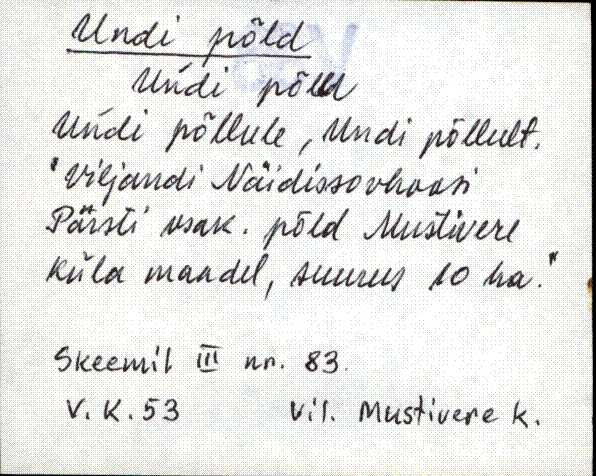 Undi põld
Uńdi põld
Uńdi põllule, Undi põllult.
"Viljandi Näidissovhoosi
Pärsti osak. põld Mustivere
küla maadel, suurus 10 ha."
Skeemil III nr. 83.
V.K.53 Vil. Mustivere k.